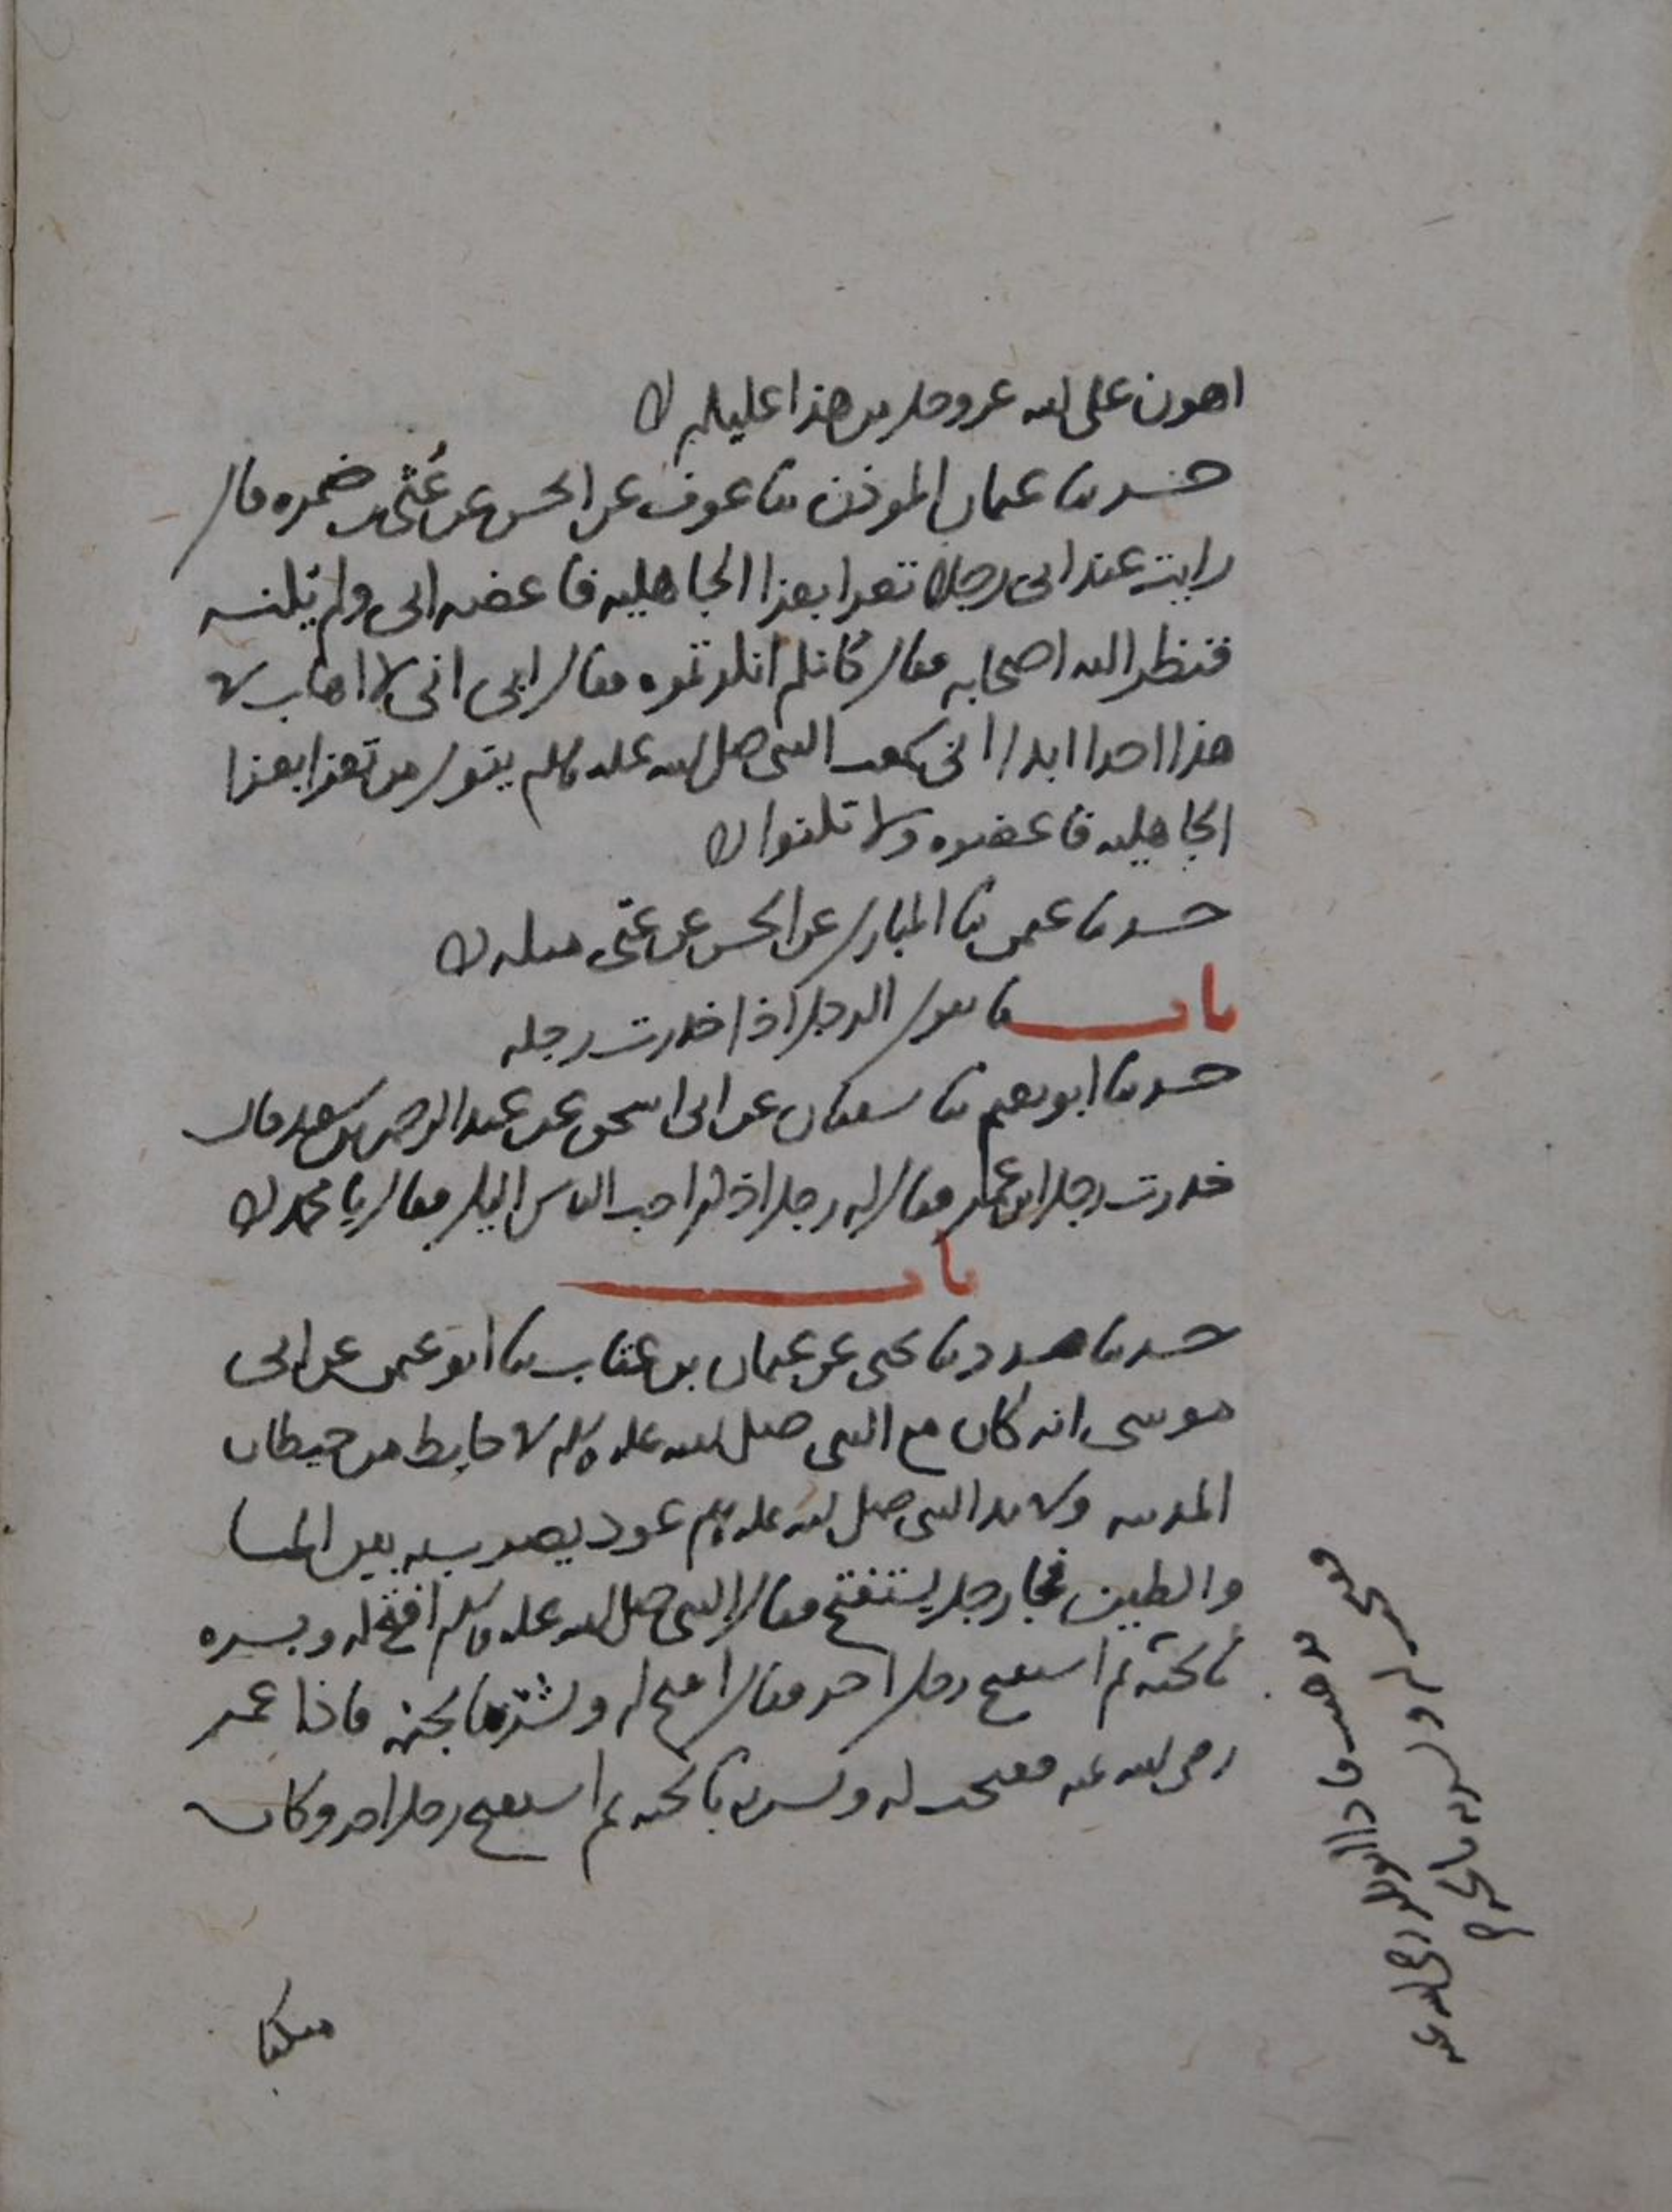 اهون على الله عز وجل من هذا عليكم
حدثنا عثمان الموذن ثنا عوف عن الحسن عن عُتَي بن ضمره قال
رايت عند ابى رجلا تعزا بعزا الجاهليه فاعضه ابى ولم يكنه
فنظر اليه اصحابه فقال كانكم انكرتموه فقال ابى انى لا اهاب في
هذا احدا ابدا انى سمعت النبى صلى الله عليه وسلم يقول من تعزا بعزا
الجاهليه فاعضوه ولا تكنوا
حدثنا عثمن ثنا المبارك عن الحسن عن عتى مثله
باب ما يقول الرجل اذا خدرت رجله
حدثنا ابو نعيم ثنا سفيان عن ابى اسحق عن عبد الرحمن بن سعد قال
خدرت رجل ابن عمر فقال له رجل اذكر احب الناس اليك فقال يا محمد
باب
حدثنا مسدد ثنا يحيى عن عثمان بن غياث ثنا ابو عثمن عن ابى
موسى انه كان مع النبى صلى الله عليه وسلم في حايط من حيطان
المدينه وفي يد النبى صلى الله عليه وسلم عود يضرب به بين الما
والطين فجا رجل يستفتح فقال النبى صلى الله عليه وسلم افتح له وبشره
بالجنه ثم استفتح رجل اخر فقال افتح له وبشره بالجنه فاذا عمر
رضى الله عنه ففتحت له وبشرته بالجنه ثم استفتح رجل اخر وكان
فذهبت فاذا ابو بكر رضى الله عنه
ففتحت له وبشرته بالجنه
متكيا